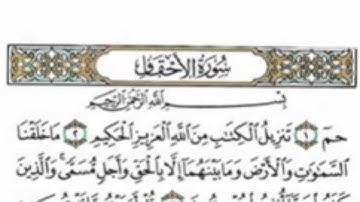 سُورَةُ الأَحْقَافِ
بِسْمِ اللَّهِ الرَّحْمَٰنِ الرَّحِيمِ
حمٓ ١ تَنزِيلُ الْكِتَٰبِ مِنَ اللَّهِ الْعَزِيزِ الْحَكِيمِ ٢ مَا خَلَقْنَا
السَّمَٰوَٰتِ وَالْأَرْضَ وَمَا بَيْنَهُمَآ إِلَّا بِالْحَقِّ وَأَجَلٍ مُّسَمًّى وَالَّذِينَ